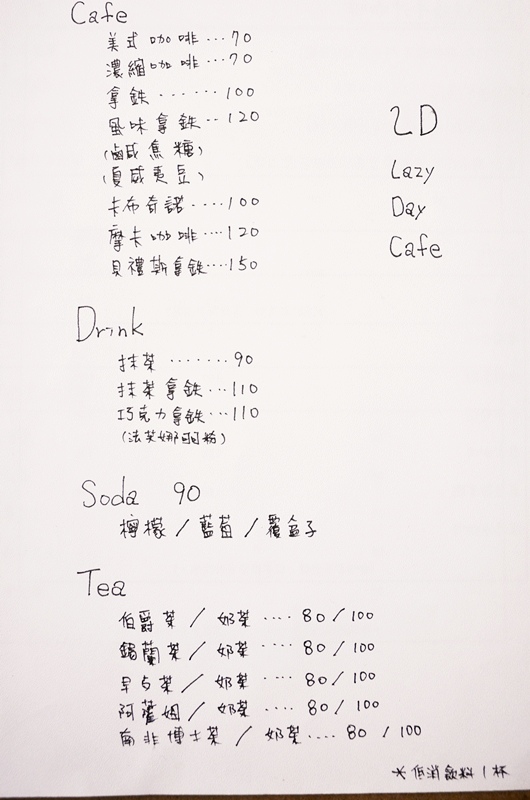 Cafe
美式咖啡...70
濃縮咖啡...70
拿鉄.......100
風味拿鉄..120
(鹹焦糖)
(夏威夷豆)
卡布奇諾....100
摩卡咖啡....120
貝禮斯拿鉄....150
2D
Lazy
Day
Cafe
Drink
抹茶.......90
抹茶拿鉄...110
巧克力拿鉄...110
(法芙娜可可粉)
Soda 90
檸檬/藍莓/覆盆子
Tea
伯爵茶/奶茶....80/100
錫蘭茶/奶茶....80/100
早安茶/奶茶....80/100
阿薩姆/奶茶....80/100
南非博士茶/奶茶....80/100
*低消飲料1杯